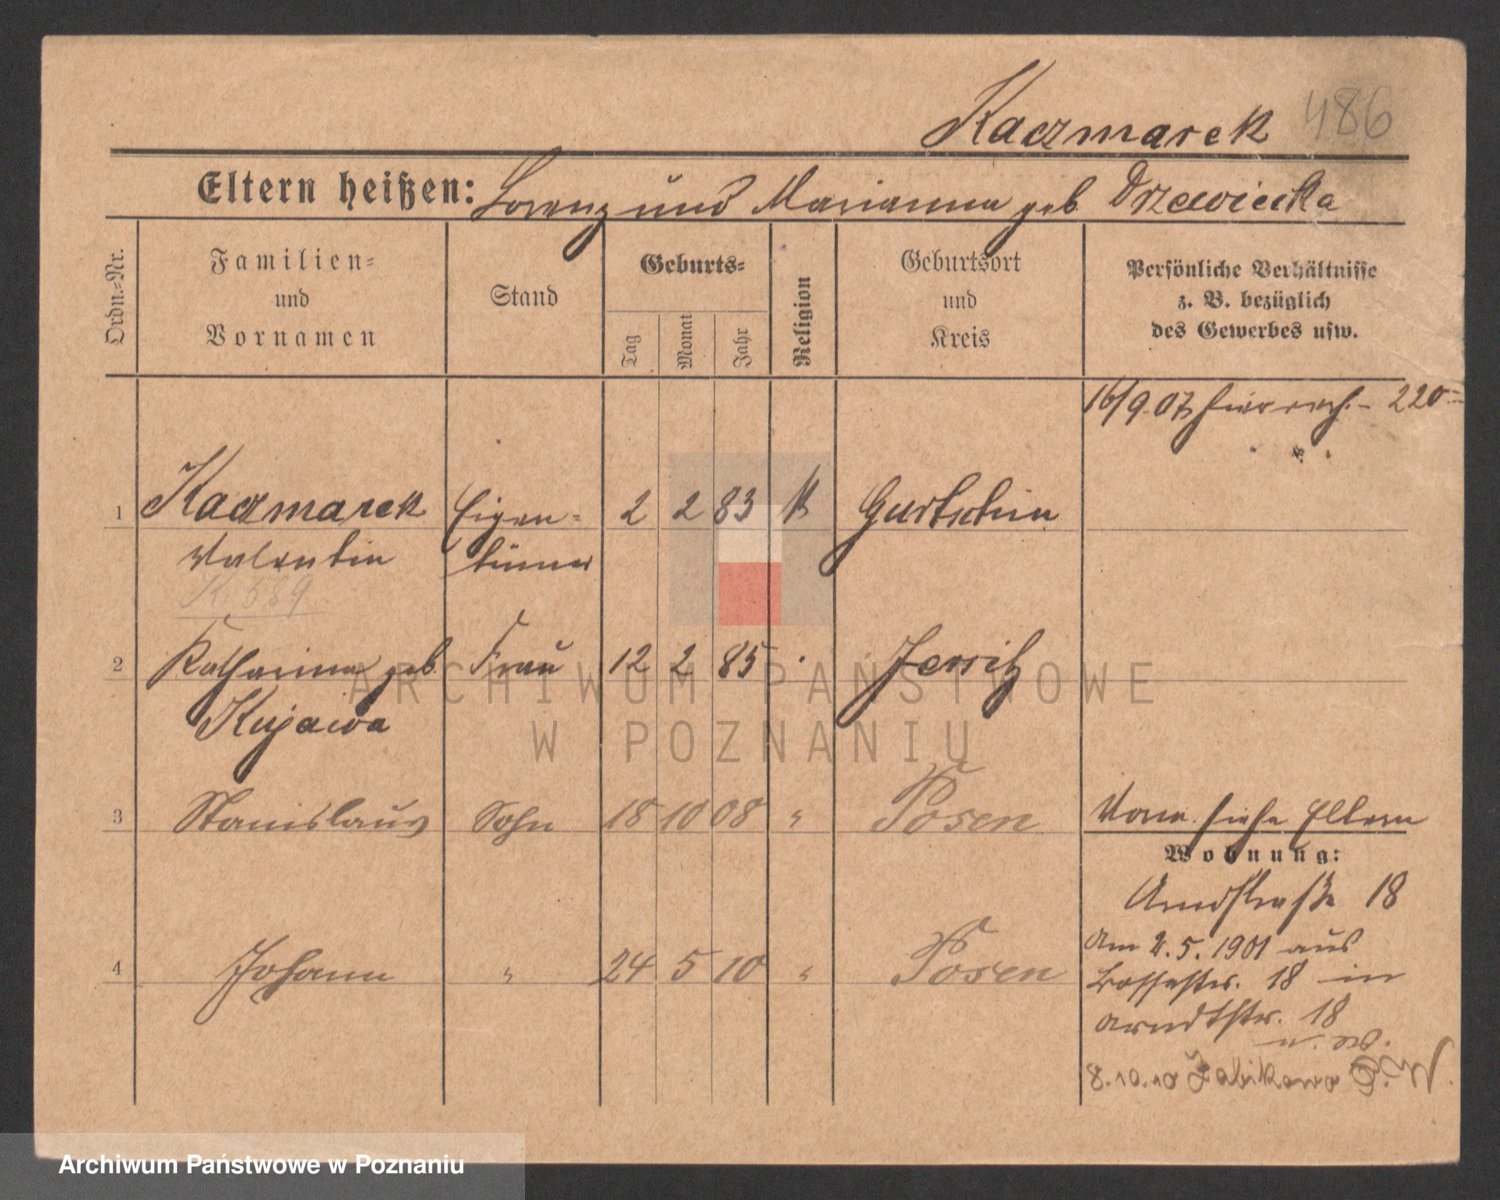 Kaczmarek 486
Eltern heißen: Lorenz und Marianna geb Drzewiecka
Ordn.-Nr.
Familien-
und
Vornamen
Stand
Geburts-
Tag
Monat
Jahr
Religion
Geburtsort
und
Kreis
Persönliche Verhältnisse
z. B. bezüglich
des Gewerbes usw.
16/9.07 220
1 Kaczmarek Eigen- 2 2 83 K Gurtschin
Valentin tümer
K. 589
2 Katharina geb Frau 12 2 85 Jersitz
Kujawa
3 Stanislaus Sohn 18 10 08 " Posen
Vorm. siehe Eltern
Wohnung:
Arndtstraße 18
4 Johann " 24 5 10 " Posen
Am 2.5.1901 aus
18 in
Arndtstr. 18
8.10.10 Zabikowo
ARCHIWUM PAŃSTWOWE
W POZNANIU
Archiwum Państwowe w Poznaniu